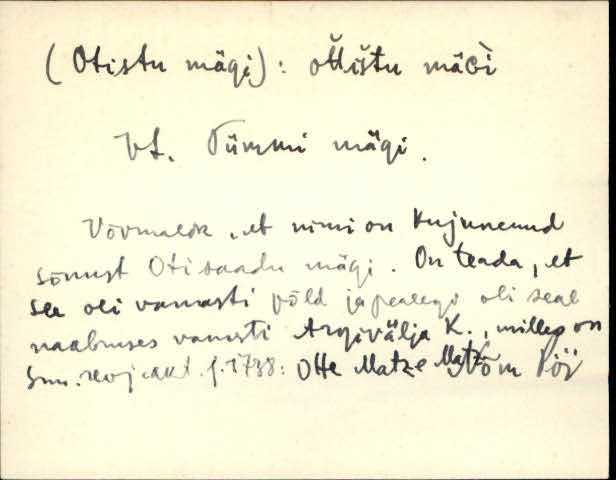 (Otistu mägi): oťťištu mäǵi
Vt. Tümmi mägi.
Võimalik, et nimi on kujunenud
sõnust Otisaadu mägi. On teada, et
see oli vanasti põld ja pealegi oli seal
naabruses vanasti Argivälja K., milles on
1738: Otte Matze Matz